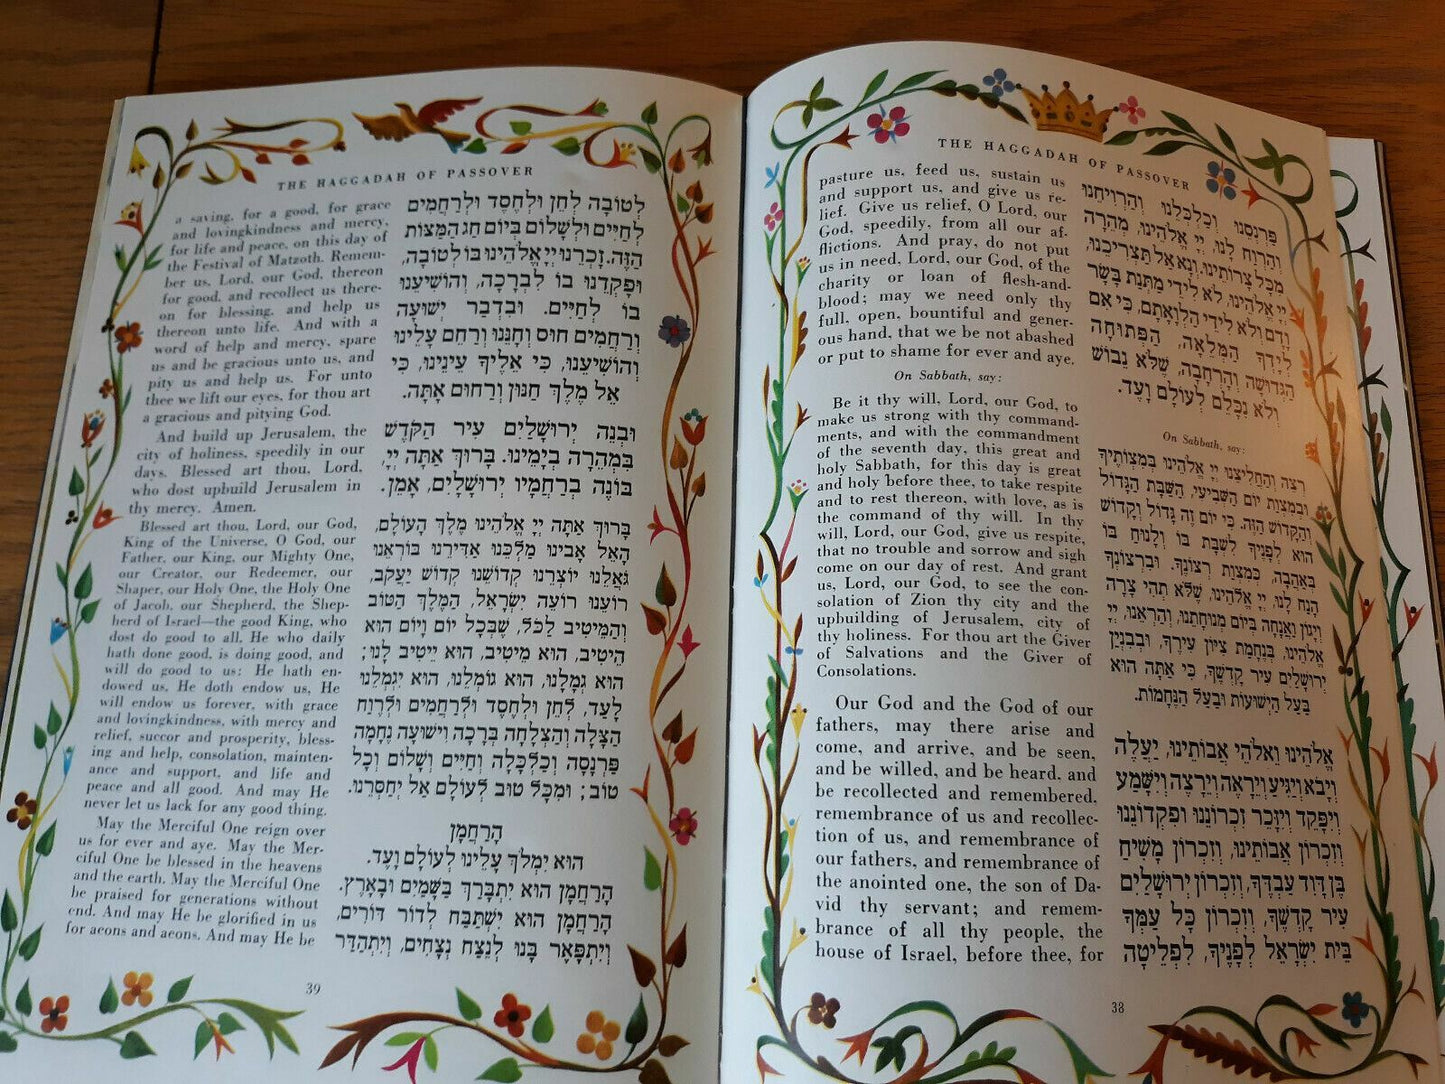 THE HAGGADAH OF PASSOVER
pasture us, feed us, sustain us
and support us, and give us re-
lief. Give us relief, O Lord, our
God, speedily, from all our af-
flictions. And pray, do not put
us in need, Lord, our God, of the
charity or loan of flesh-and-
blood; may we need only thy
full, open, bountiful and gener-
ous hand, that we be not abashed
or put to shame for ever and aye.
On Sabbath, say:
Be it thy will, Lord, our God, to
make us strong with thy command-
ments, and with the commandment
of the seventh day, this great and
holy Sabbath, for this day is great
and holy before thee, to take respite
and to rest thereon, with love, as is
the command of thy will. In thy
will, Lord, our God, give us respite,
that no trouble and sorrow and sigh
come on our day of rest. And grant
us, Lord, our God, to see the con-
solation of Zion thy city and the
upbuilding of Jerusalem, city of
thy holiness. For thou art the Giver
of Salvations and the Giver of
Consolations.
Our God and the God of our
fathers, may there arise and
come, and arrive, and be seen,
and be willed, and be heard, and
be recollected and remembered,
remembrance of us and recollec-
tion of us, and remembrance of
our fathers, and remembrance of
the anointed one, the son of Da-
vid thy servant; and remem-
brance of all thy people, the
house of Israel, before thee, for
פַּרְנְסֵנוּ וְכַלְכְּלֵנוּ וְהַרְוִיחֵנוּ
וְהַרְוַח לָנוּ, יְיָ אֱלֹהֵינוּ, מְהֵרָה
מִכָּל צָרוֹתֵינוּ. וְנָא אַל תַּצְרִיכֵנוּ,
יְיָ אֱלֹהֵינוּ, לֹא לִידֵי מַתְּנַת בָּשָׂר
וָדָם וְלֹא לִידֵי הַלְוָאָתָם, כִּי אִם
לְיָדְךָ הַמְּלֵאָה, הַפְּתוּחָה
הַגְּדוּשָׁה וְהָרְחָבָה, שֶׁלֹּא נֵבוֹשׁ
וְלֹא נִכָּלֵם לְעוֹלָם וָעֶד.
On Sabbath, say:
רְצֵה וְהַחֲלִיצֵנוּ יְיָ אֱלֹהֵינוּ בְּמִצְוֹתֶיךָ
וּבְמִצְוַת יוֹם הַשְּׁבִיעִי, הַשַּׁבָּת הַגָּדוֹל
וְהַקָּדוֹשׁ הַזֶּה. כִּי יוֹם זֶה גָּדוֹל וְקָדוֹשׁ
הוּא לְפָנֶיךָ לִשְׁבָּת בּוֹ וְלָנוּחַ בּוֹ
בְּאַהֲבָה, כְּמִצְוַת רְצוֹנֶךָ. וּבִרְצוֹנְךָ
הָנַח לָנוּ, יְיָ אֱלֹהֵינוּ, שֶׁלֹּא תְהִי צָרָה
וְיָגוֹן וַאֲנָחָה בְּיוֹם מְנוּחָתֵנוּ, וְהַרְאֵנוּ, יְיָ
אֱלֹהֵינוּ, בְּנֶחָמַת צִיּוֹן עִירֶךָ, וּבְבִנְיַן
יְרוּשָׁלַיִם עִיר קָדְשֶׁךָ, כִּי אַתָּה הוּא
בַּעַל הַיְשׁוּעוֹת וּבַעַל הַנֶּחָמוֹת.
אֱלֹהֵינוּ וֵאלֹהֵי אֲבוֹתֵינוּ, יַעֲלֶה
וְיָבֹא וְיַגִּיעַ וְיֵרָאֶה וְיֵרָצֶה וְיִשָּׁמַע
וְיִפָּקֵד וְיִזָּכֵר זִכְרוֹנֵנוּ וּפִקְדוֹנֵנוּ
וְזִכְרוֹן אֲבוֹתֵינוּ, וְזִכְרוֹן מָשִׁיחַ
בֶּן דָּוִד עַבְדֶּךָ, וְזִכְרוֹן יְרוּשָׁלַיִם
עִיר קָדְשֶׁךָ, וְזִכְרוֹן כָּל עַמְּךָ
בֵּית יִשְׂרָאֵל לְפָנֶיךָ, לִפְלֵיטָה
38
THE HAGGADAH OF PASSOVER
a saving, for a good, for grace
and lovingkindness and mercy,
for life and peace, on this day of
the Festival of Matzoth. Remem-
ber us, Lord, our God, thereon
for good, and recollect us there-
on for blessing, and help us
thereon unto life. And with a
word of help and mercy, spare
us and be gracious unto us, and
pity us and help us. For unto
thee we lift our eyes, for thou art
a gracious and pitying God.
And build up Jerusalem, the
city of holiness, speedily in our
days. Blessed art thou, Lord,
who dost upbuild Jerusalem in
thy mercy. Amen.
Blessed art thou, Lord, our God,
King of the Universe, O God, our
Father, our King, our Mighty One,
our Creator, our Redeemer, our
Shaper, our Holy One, the Holy One
of Jacob, our Shepherd, the Shep-
herd of Israel—the good King, who
dost do good to all, He who daily
hath done good, is doing good, and
will do good to us: He hath en-
dowed us, He doth endow us, He
will endow us forever, with grace
and lovingkindness, with mercy and
relief, succor and prosperity, bless-
ing and help, consolation, mainten-
ance and support, and life and
peace and all good. And may He
never let us lack for any good thing.
May the Merciful One reign over
us for ever and aye. May the Mer-
ciful One be blessed in the heavens
and the earth. May the Merciful One
be praised for generations without
end. And may He be glorified in us
for aeons and aeons. And may He be
לְטוֹבָה לְחֵן וּלְחֶסֶד וּלְרַחֲמִים
לְחַיִּים וּלְשָׁלוֹם בְּיוֹם חַג הַמַּצּוֹת
הַזֶּה. זָכְרֵנוּ יְיָ אֱלֹהֵינוּ בּוֹ לְטוֹבָה,
וּפָקְדֵנוּ בוֹ לִבְרָכָה, וְהוֹשִׁיעֵנוּ
בוֹ לְחַיִּים. וּבִדְבַר יְשׁוּעָה
וְרַחֲמִים חוּס וְחָנֵּנוּ וְרַחֵם עָלֵינוּ
וְהוֹשִׁיעֵנוּ, כִּי אֵלֶיךָ עֵינֵינוּ, כִּי
אֵל מֶלֶךְ חַנּוּן וְרַחוּם אָתָּה.
וּבְנֵה יְרוּשָׁלַיִם עִיר הַקֹּדֶשׁ
בִּמְהֵרָה בְיָמֵינוּ. בָּרוּךְ אַתָּה יְיָ,
בּוֹנֵה בְרַחֲמָיו יְרוּשָׁלָיִם, אָמֵן.
בָּרוּךְ אַתָּה יְיָ אֱלֹהֵינוּ מֶלֶךְ הָעוֹלָם,
הָאֵל אָבִינוּ מַלְכֵּנוּ אַדִּירֵנוּ בּוֹרְאֵנוּ
גֹּאֲלֵנוּ יוֹצְרֵנוּ קְדוֹשֵׁנוּ קְדוֹשׁ יַעֲקֹב,
רוֹעֵנוּ רוֹעֵה יִשְׂרָאֵל, הַמֶּלֶךְ הַטּוֹב
וְהַמֵּיטִיב לַכֹּל, שֶׁבְּכָל יוֹם וָיוֹם הוּא
הֵיטִיב, הוּא מֵיטִיב, הוּא יֵיטִיב לָנוּ;
הוּא גְמָלָנוּ, הוּא גוֹמְלֵנוּ, הוּא יִגְמְלֵנוּ
לָעַד, לְחֵן וּלְחֶסֶד וּלְרַחֲמִים וּלְרֶוַח
הַצָּלָה וְהַצְלָחָה בְּרָכָה וִישׁוּעָה נֶחָמָה
פַּרְנָסָה וְכַלְכָּלָה וְחַיִּים וְשָׁלוֹם וְכָל
טוֹב; וּמִכָּל טוּב לְעוֹלָם אַל יְחַסְּרֵנוּ.
הָרַחֲמָן
הוּא יִמְלֹךְ עָלֵינוּ לְעוֹלָם וָעֶד.
הָרַחֲמָן הוּא יִתְבָּרַךְ בַּשָּׁמַיִם וּבָאָרֶץ.
הָרַחֲמָן הוּא יִשְׁתַּבַּח לְדוֹר דּוֹרִים,
וְיִתְפָּאֵר בָּנוּ לְנֵצַח נְצָחִים, וְיִתְהַדַּר
39